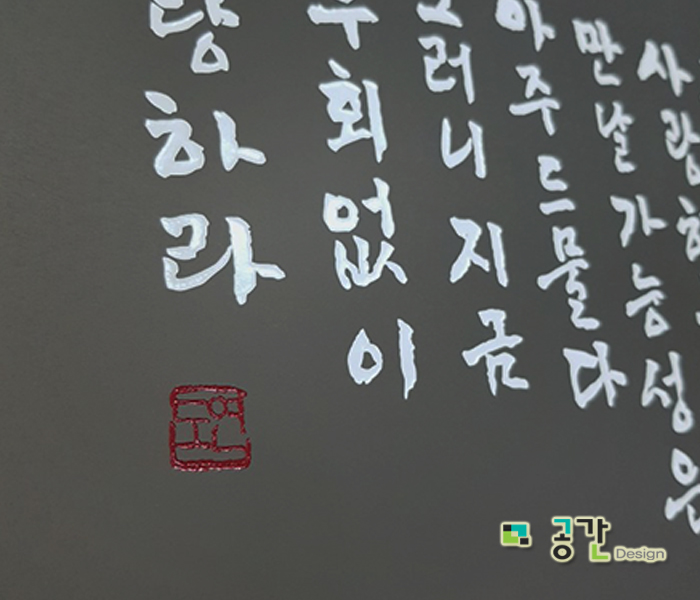 사랑하
만날 가능성은
아주 드물다
그러니 지금
후회 없이
랑하라
공간 Design